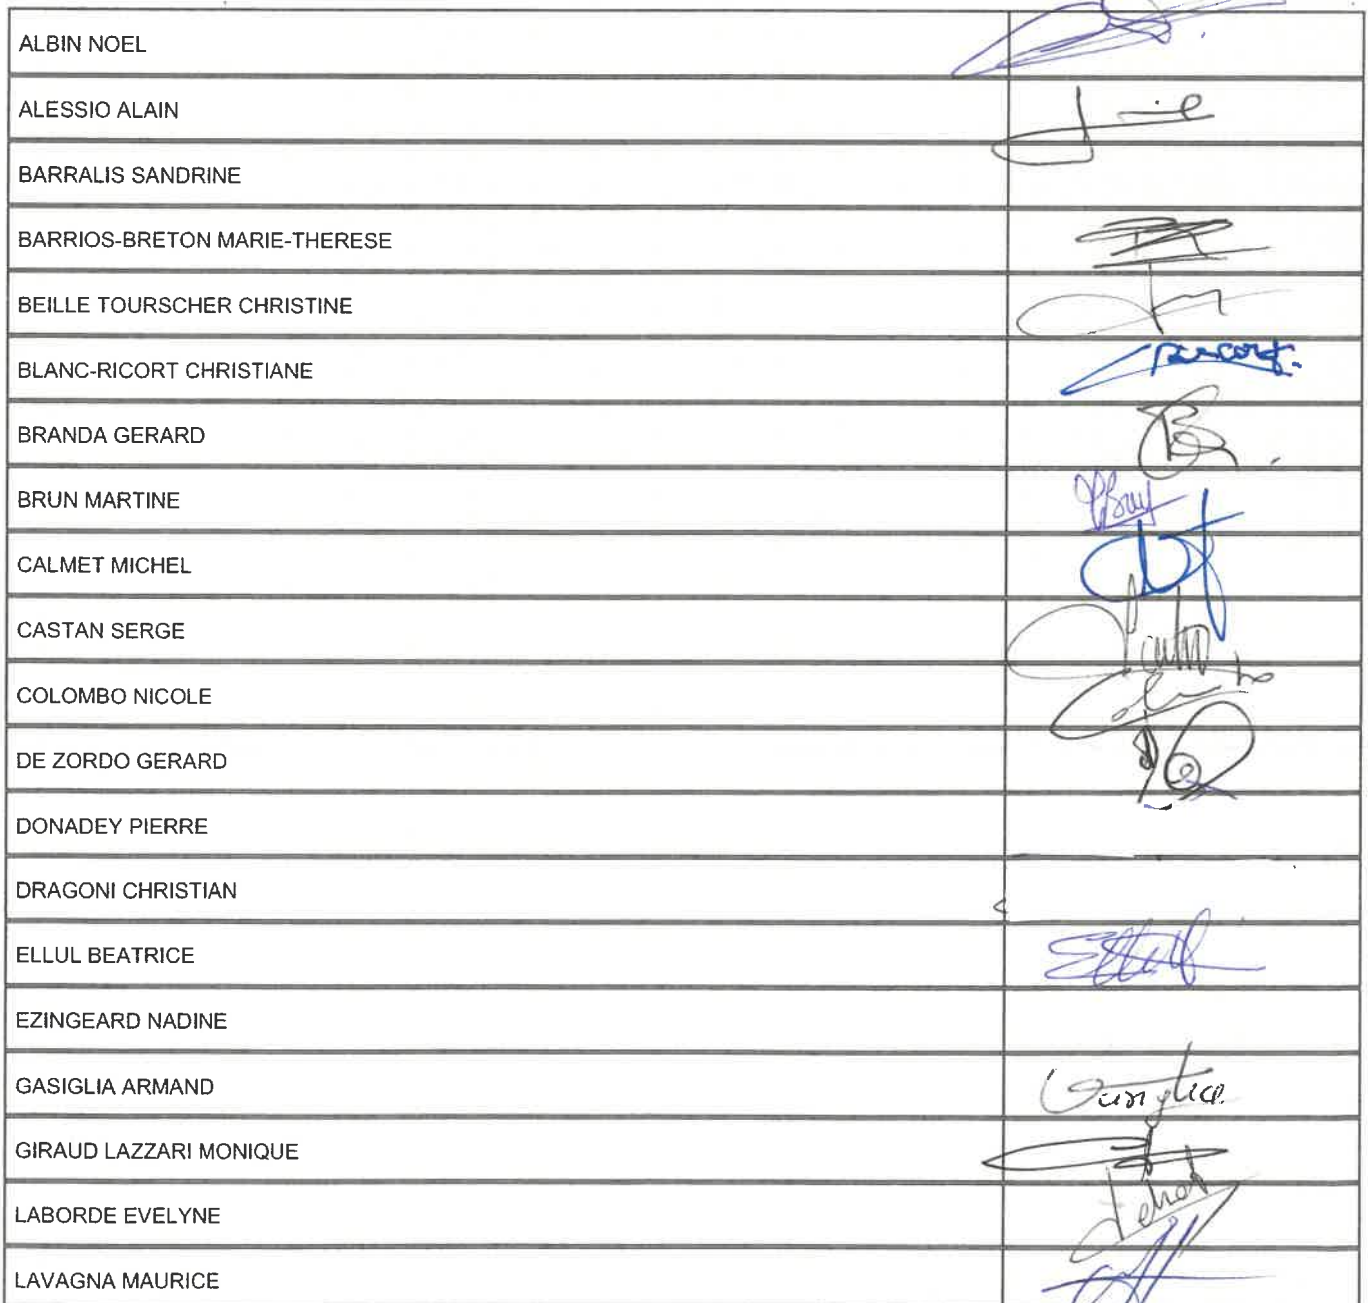 ALBIN NOEL
ALESSIO ALAIN
BARRALIS SANDRINE
BARRIOS-BRETON MARIE-THERESE
BEILLE TOURSCHER CHRISTINE
BLANC-RICORT CHRISTIANE
BRANDA GERARD
BRUN MARTINE
CALMET MICHEL
CASTAN SERGE
COLOMBO NICOLE
DE ZORDO GERARD
DONADEY PIERRE
DRAGONI CHRISTIAN
ELLUL BEATRICE
EZINGEARD NADINE
GASIGLIA ARMAND
GIRAUD LAZZARI MONIQUE
LABORDE EVELYNE
LAVAGNA MAURICE